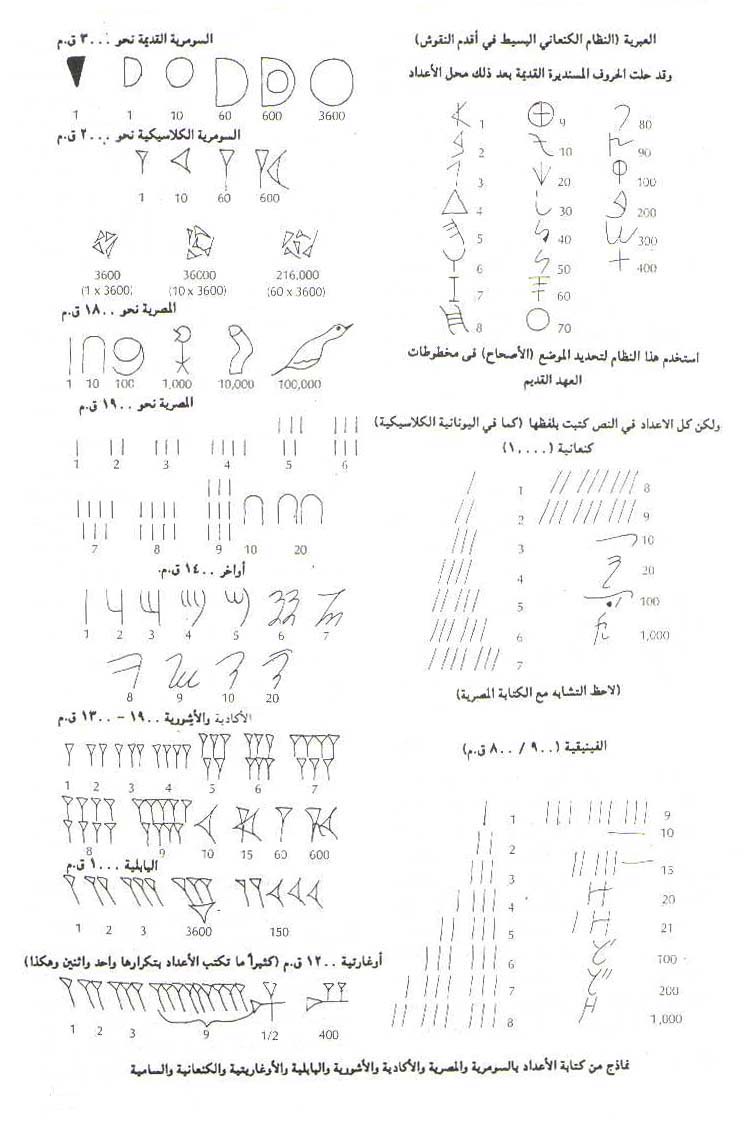 العبرية (النظام الكنعاني البسيط في أقدم النقوش)
وقد حلت الحروف المستديرة القديمة بعد ذلك محل الأعداد
1 9 80
2 10 90
3 20 100
4 30 200
5 40 300
6 50 400
7 60
8 70
استخدم هذا النظام لتحديد الموضع (الأصحاح) فى مخطوطات
العهد القديم
ولكن كل الاعداد في النص كتبت بلفظها (كما في اليونانية الكلاسيكية)
كنعانية (١٠٠٠٠)
1 8
2 9
3 10
4 20
5 100
6 1,000
7
(لاحظ التشابه مع الكتابة المصرية)
الفينيقية (٩٠٠ / ٨٠٠ ق.م)
1 9
2 10
3 15
4 20
5 21
6 100
7 200
8 1,000
السومرية القديمة نحو ٣٠٠٠ ق.م
1 1 10 60 600 3600
السومرية الكلاسيكية نحو ٢٠٠٠ ق.م
1 10 60 600
3600 36000 216,000
(1 x 3600) (10 x 3600) (60 x 3600)
المصرية نحو ١٨٠٠ ق.م
1 10 100 1,000 10,000 100,000
المصرية نحو ١٩٠٠ ق.م
1 2 3 4 5 6
7 8 9 10 20
أواخر ١٤٠٠ ق.م.
1 2 3 4 5 6 7
8 9 10 20
الأكادية والأشورية ١٩٠٠ - ١٣٠٠ ق.م
1 2 3 4 5 6 7
8 9 10 15 60 600
البابلية ١٠٠٠ ق.م
1 2 3 3600 150
أوغارتية ١٢٠٠ ق.م (كثيراً ما تكتب الأعداد بتكرارها واحد واثنين وهكذا)
1 2 3 9 1/2 400
نماذج من كتابة الأعداد بالسومرية والمصرية والأكادية والأشورية والبابلية والأوغاريتية والكنعانية والسامية